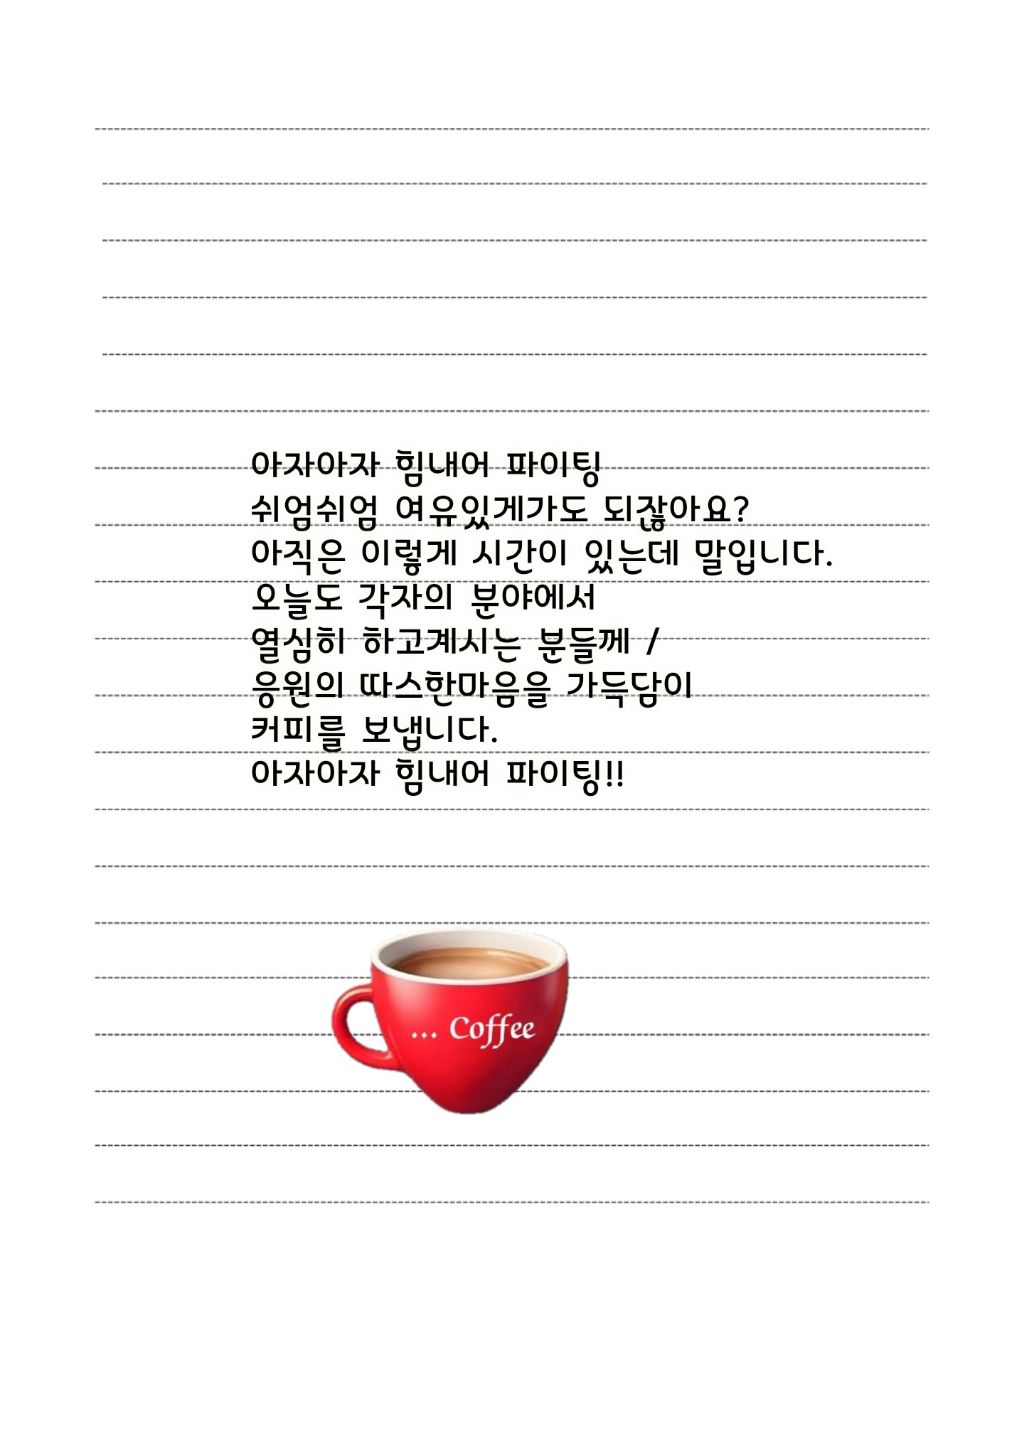 아자아자 힘내어 파이팅
쉬엄쉬엄 여유있게가도 되잖아요?
아직은 이렇게 시간이 있는데 말입니다.
오늘도 각자의 분야에서
열심히 하고계시는 분들께 /
응원의 따스한마음을 가득담이
커피를 보냅니다.
아자아자 힘내어 파이팅!!
... Coffee